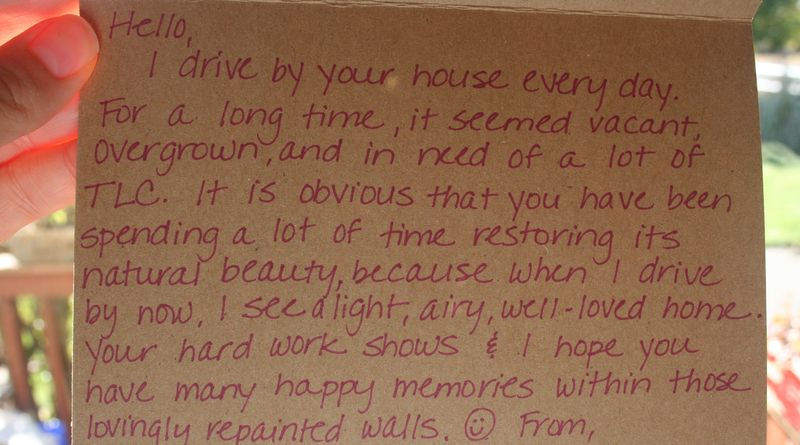 Hello,
I drive by your house every day.
For a long time, it seemed vacant,
overgrown, and in need of a lot of
TLC. It is obvious that you have been
spending a lot of time restoring its
natural beauty, because when I drive
by now, I see a light, airy, well-loved home.
Your hard work shows & I hope you
have many happy memories within those
lovingly repainted walls. ☺ From,